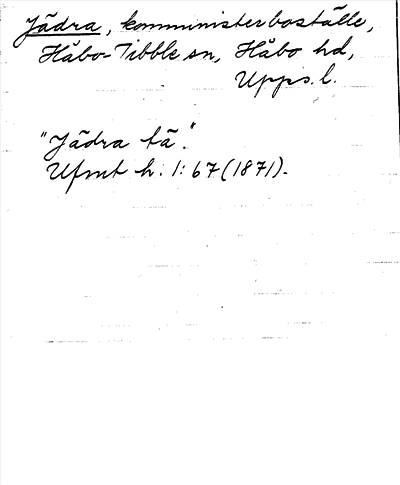 Jädra, komministerboställe,
Håbo-Tibble sn, Håbo hd,
Upps. l.
"Jädra tä."
Ufmt h: 1: 67 (1871).